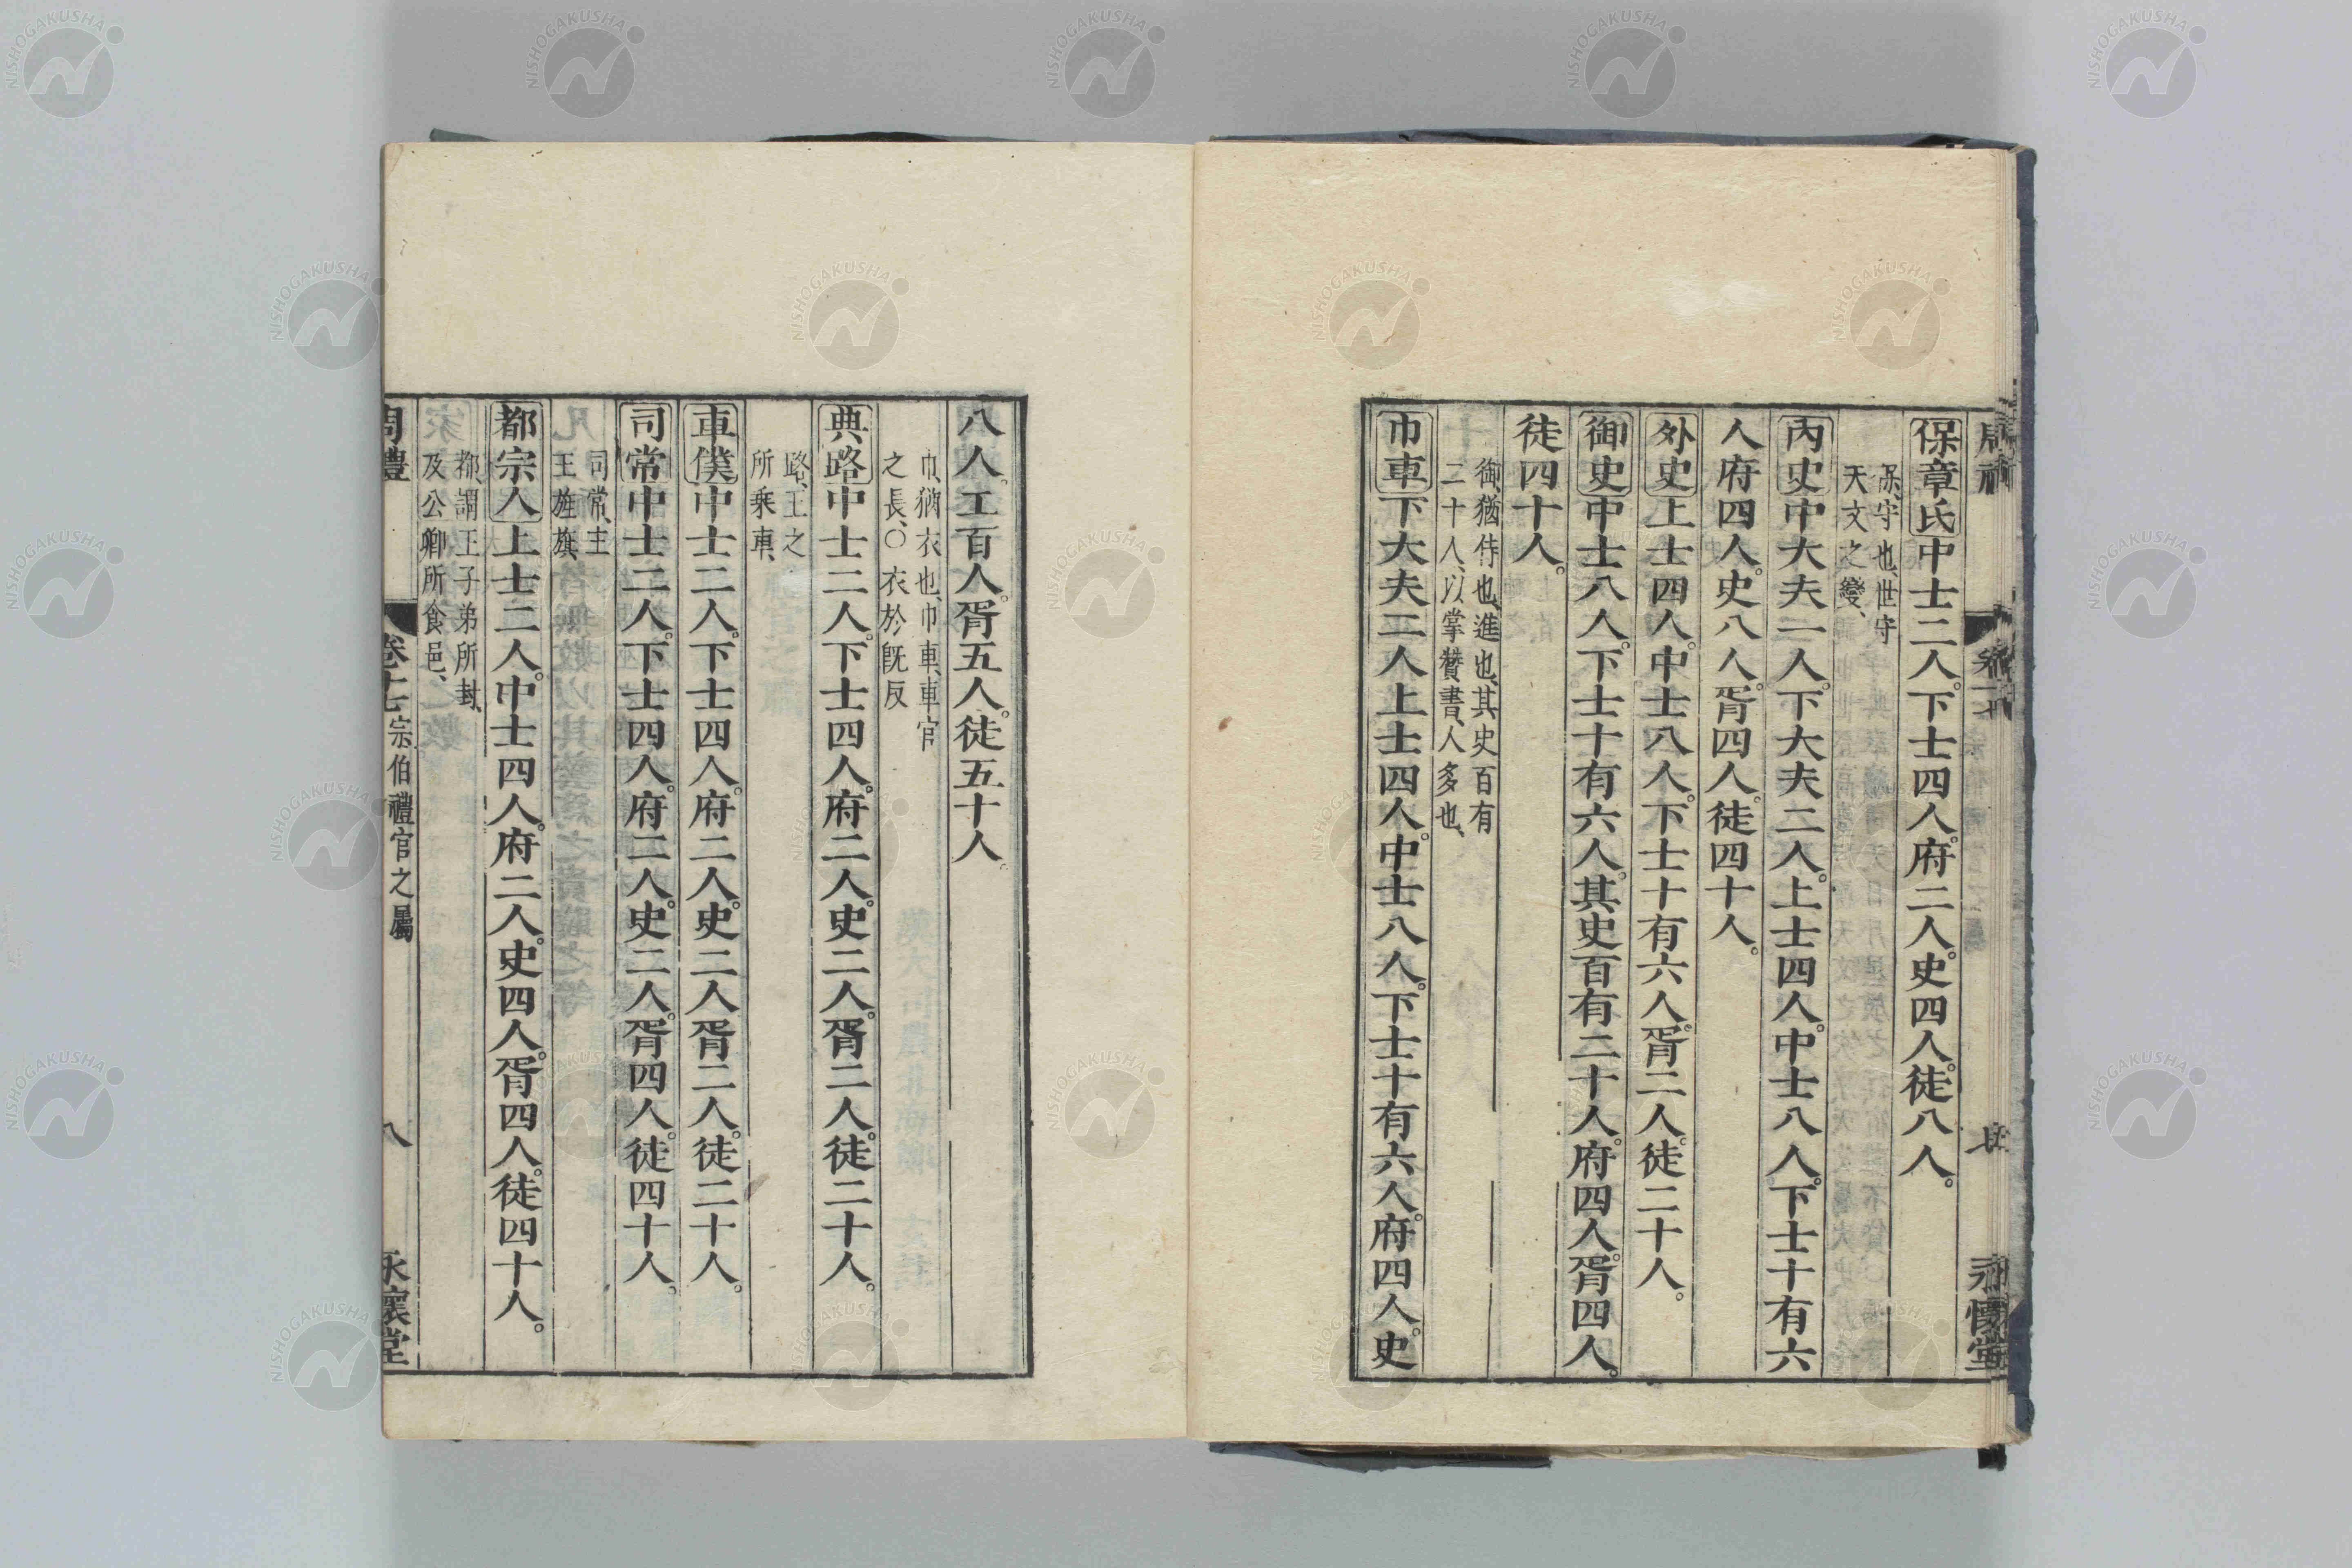 保章氏中士二人。下士四人。府二人。史四人。徒八人。
保、守也、世守
天文之變、
內史中大夫一人。下大夫二人。上士四人。中士八人。下士十有六
人府四人。史八人。胥四人。徒四十人。
外史上士四人。中士八人。下士十有六人。胥二人。徒二十人。
御史中士八人。下士十有六人。其史百有二十人。府四人。胥四人。
徒四十人。
御、猶侍也、進也、其史百有
二十人、以掌贊書、人多也、
巾車下大夫二人上士四人。中士八人。下士十有六人。府四人。史
八人。工百人。胥五人。徒五十人。
巾、猶衣也、巾車、車官
之長、〇衣於旣反
典路中士二人。下士四人。府二人。史二人。胥二人。徒二十人。
路、王之
所乘車、
車僕中士二人。下士四人。府二人。史二人胥二人。徒二十人。
司常中士二人。下士四人。府二人。史二人。胥四人。徒四十人。
司常、主
王旌旗、
都宗人上士二人。中士四人。府二人。史四人。胥四人。徒四十人。
都、謂王子弟所封、
及公卿所食邑、
周禮 卷十七 宗伯禮官之屬 八 永懷堂
NISHOGAKUSHA